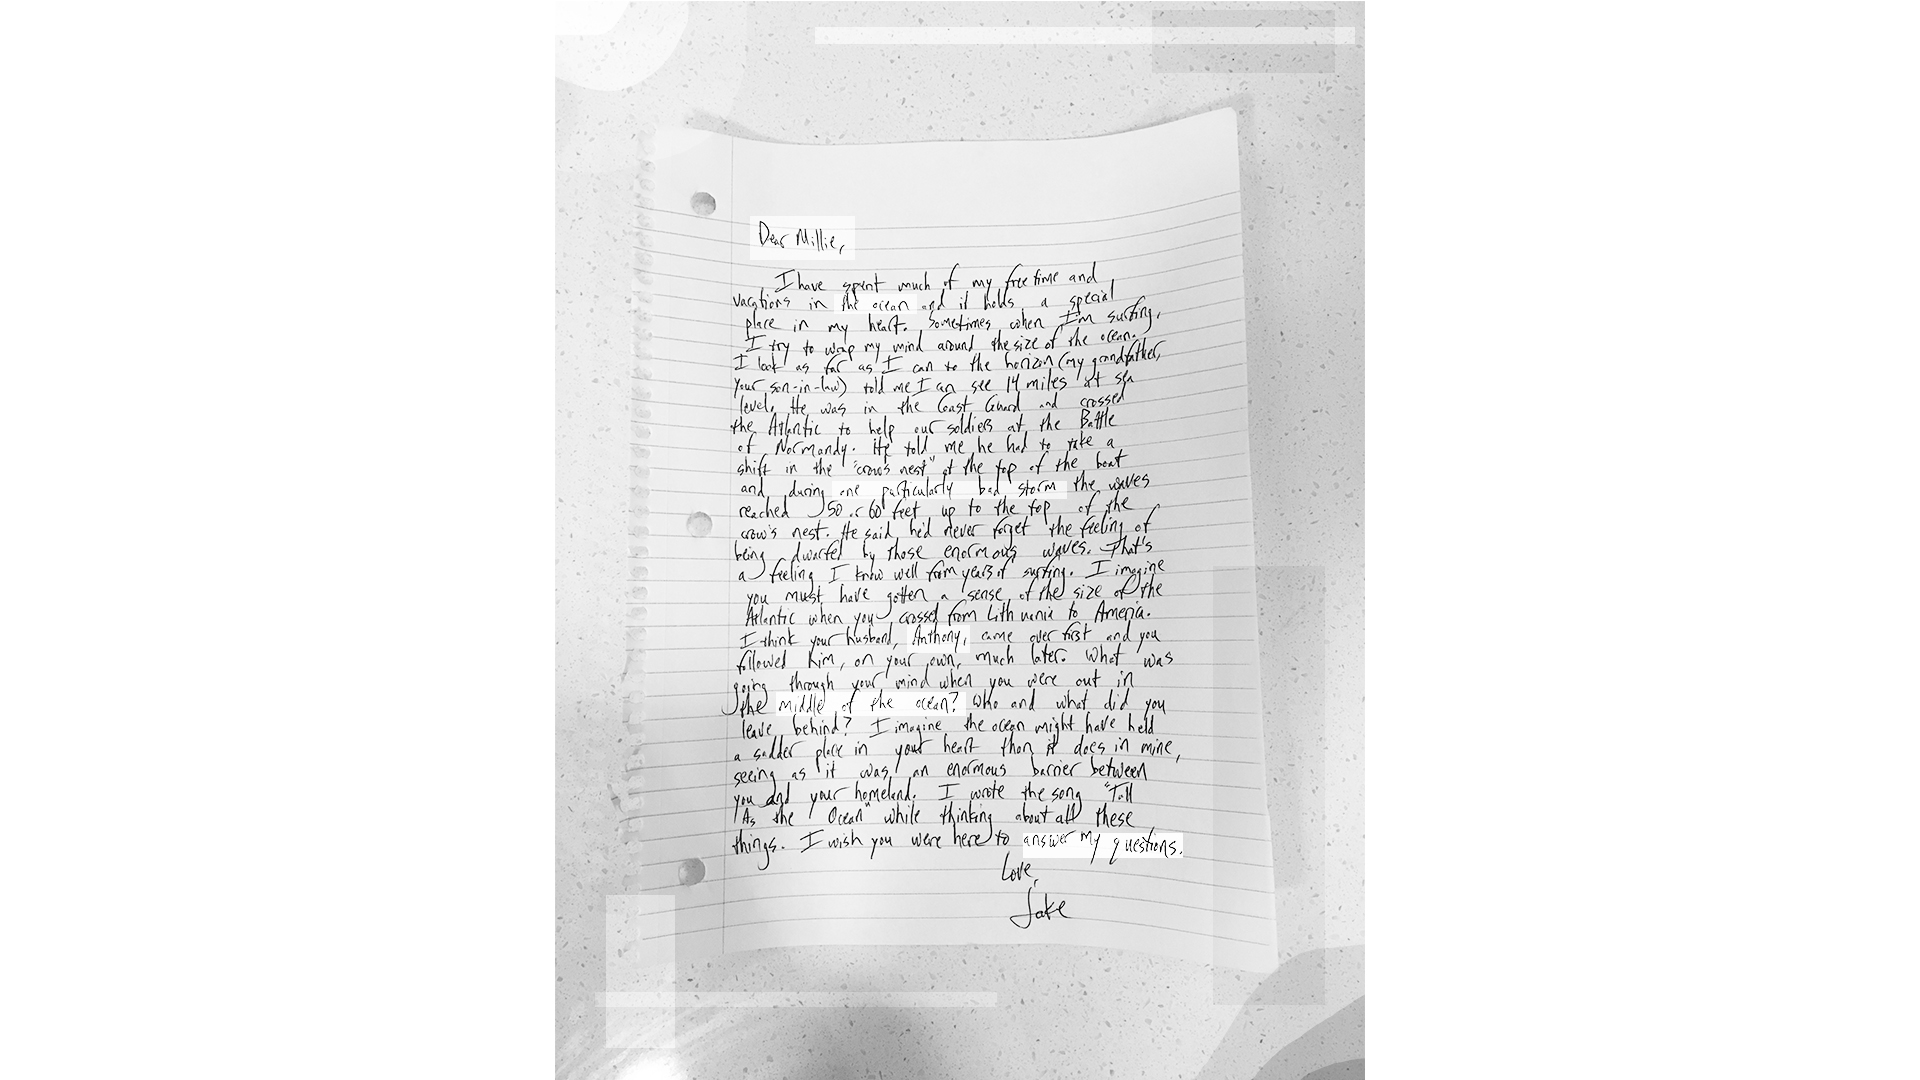 Dear Millie,
I have spent much of my free time and
vacations in the ocean and it holds a special
place in my heart. Sometimes when I'm surfing,
I try to wrap my mind around the size of the ocean.
I look as far as I can to the horizon (my grandfather,
your son-in-law) told me I can see 14 miles at sea
level. He was in the Coast Guard and crossed
the Atlantic to help our soldiers at the Battle
of Normandy. He told me he had to take a
shift in the "crow's nest" at the top of the boat
and, during one particularly bad storm the waves
reached 50 or 60 feet up to the top of the
crow's nest. He said he'd never forget the feeling of
being dwarfed by those enormous waves. That's
a feeling I know well from years of surfing. I imagine
you must have gotten a sense of the size of the
Atlantic when you crossed from Lithuania to America.
I think your husband, Anthony, came over first and you
followed him, on your own, much later. What was
going through your mind when you were out in
the middle of the ocean? Who and what did you
leave behind? I imagine the ocean might have held
a sadder place in your heart than it does in mine,
seeing as it was an enormous barrier between
you and your homeland. I wrote the song "Tall
As the Ocean" while thinking about all these
things. I wish you were here to answer my questions.
Love,
Jake